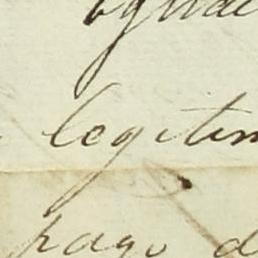 legitim
pago d